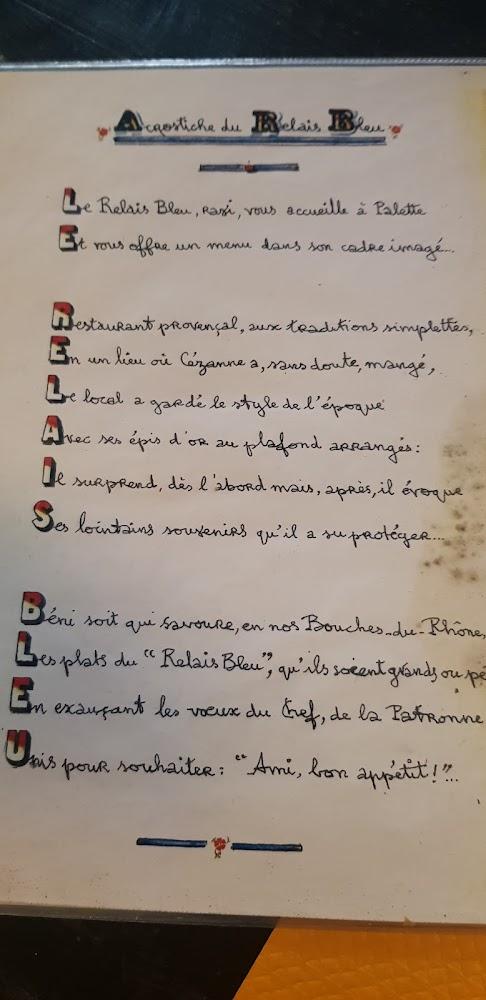 Acrostiche du Relais Bleu
Le Relais Bleu, ravi, vous accueille à Palette
Et vous offre un menu dans son cadre imagé...
Restaurant provençal, aux traditions simplettes,
En un lieu où Cézanne a, sans doute, mangé,
Le local a gardé le style de l'époque
Avec ses épis d'or au plafond arrangés :
Il surprend, dès l'abord mais, après, il évoque
Ses lointains souvenirs qu'il a su protéger...
Béni soit qui savoure, en nos Bouches-du-Rhône,
Les plats du "Relais Bleu", qu'ils soient grands ou pe
En exauçant les vœux du Chef, de la Patronne
Unis pour souhaiter : "Ami, bon appétit !"...